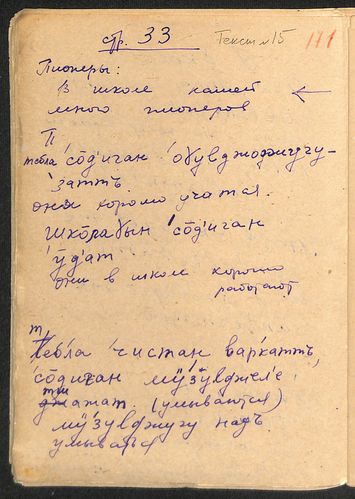 стр. 33 Текст №15 111
Пионеры:
В школе нашей
много пионеров
П
тебла со̄диган обувджоджугу-
затть.
они хорошо учатся.
Шко̄лабын со̄диган
ӯдат
они в школе хорошо
работают
т
Лебла чистан варкатть,
со̄диган мӱзӱвджеле
тшатат. (умываются)
мӱзӱвджугу надъ
умываться